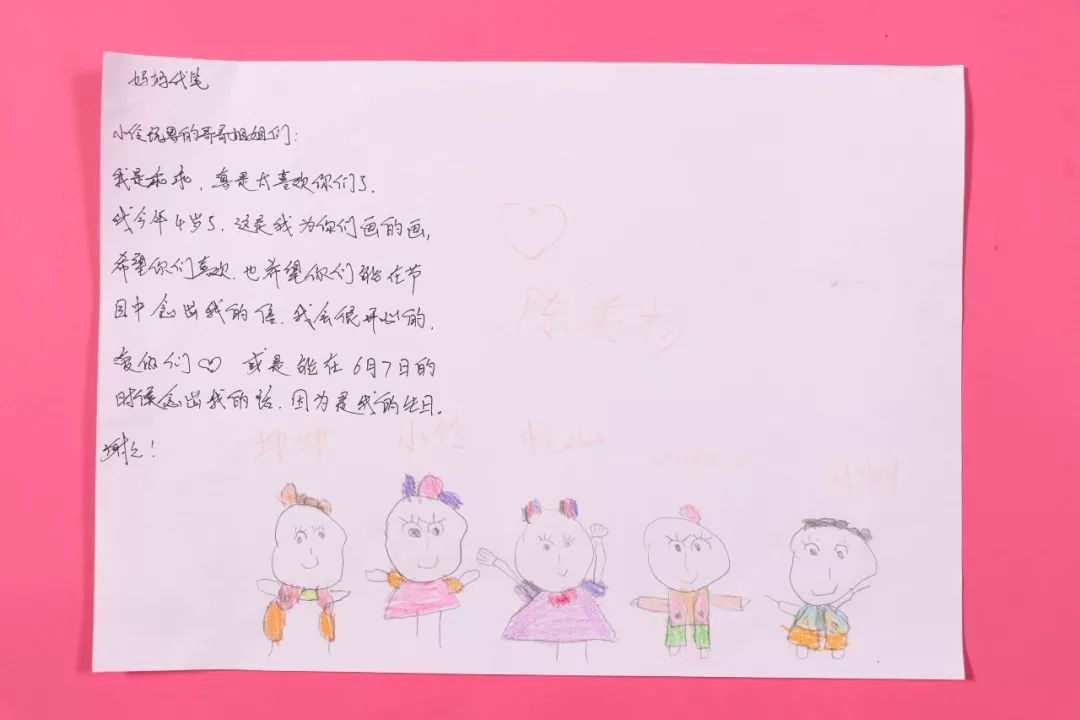 妈妈代笔
小伶玩具的哥哥姐姐们:
我是乖乖, 真是太喜欢你们了.
我今年4岁了. 这是我为你们画的画,
希望你们喜欢. 也希望你们能在节
目中念出我的信. 我会很开心的.
爱你们♡ 或是能在6月7日的
时候念出我的话. 因为是我的生日。
谢谢!
陈美
坤坤 小伶 悦儿